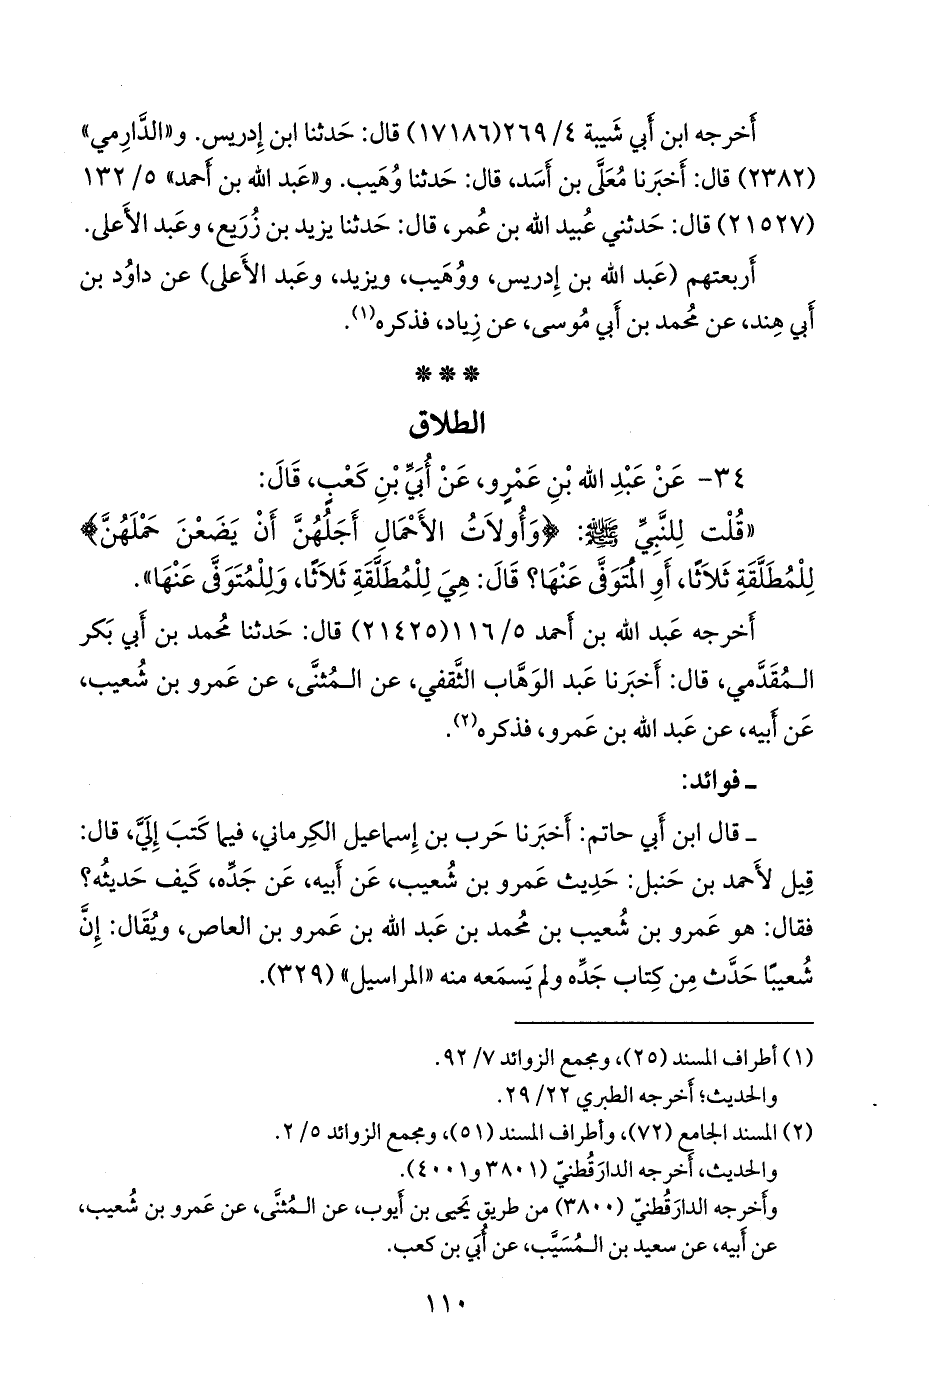 أَخرجه ابن أَبي شَيبة ٤/ ٢٦٩(١٧١٨٦) قال: حَدثنا ابن إِدريس. و«الدَّارِمي»
(٢٣٨٢) قال: أَخبَرنا مُعَلَّى بن أَسَد، قال: حَدثنا وُهَيب. و«عَبد الله بن أَحمد» ٥/ ١٣٢
(٢١٥٢٧) قال: حَدثني عُبيد الله بن عُمر، قال: حَدثنا يزيد بن زُرَيع، وعَبد الأَعلى.
أَربعتهم (عَبد الله بن إِدريس، ووُهَيب، ويزيد، وعَبد الأَعلى) عن داوُد بن
أَبي هِند، عن مُحمد بن أَبي مُوسى، عن زِياد، فذكره(١).
* * *
الطلاق
٣٤- عَنْ عَبْدِ الله بْنِ عَمْرٍو، عَنْ أُبَيِّ بْنِ كَعْبٍ، قَالَ:
«قُلْت لِلنَّبِيِّ ﷺ: ﴿وَأُولاَتُ الأَحْمَالِ أَجَلُهُنَّ أَنْ يَضَعْنَ حَمْلَهُنَّ﴾
لِلْمُطَلَّقَةِ ثَلاَثًا، أَوِ الْمُتَوَفَّى عَنْهَا؟ قَالَ: هِيَ لِلْمُطَلَّقَةِ ثَلاَثًا، وَلِلْمُتَوَفَّى عَنْهَا».
أَخرجه عَبد الله بن أَحمد ٥/ ١١٦(٢١٤٢٥) قال: حَدثنا مُحمد بن أَبي بَكر
الـمُقَدَّمي، قال: أَخبَرنا عَبد الوَهَّاب الثَّقفي، عن الـمُثنَّى، عن عَمرو بن شُعيب،
عَن أَبيه، عن عَبد الله بن عَمرو، فذكره(٢).
ـ فوائد:
ـ قال ابن أَبي حاتم: أَخبَرنا حَرب بن إِسماعيل الكِرماني، فيما كَتبَ إِلَيَّ، قال:
قِيل لأَحمد بن حَنبل: حَدِيث عَمرو بن شُعيب، عَن أَبيه، عَن جَدِّه، كَيف حَديثُه؟
فقال: هو عَمرو بن شُعيب بن مُحمد بن عَبد الله بن عَمرو بن العاص، ويُقَال: إِنَّ
شُعيبًا حَدَّث مِن كِتاب جَدِّه ولم يَسمَعه منه «المراسيل» (٣٢٩).
(١) أطراف المسند (٢٥)، ومجمع الزوائد ٧/ ٩٢.
والحديث؛ أَخرجه الطبري ٢٢/ ٢٩.
(٢) المسند الجامع (٧٢)، وأطراف المسند (٥١)، ومجمع الزوائد ٥/ ٢.
والحديث، أَخرجه الدارَقُطنيّ (٣٨٠١ و٤٠٠١).
وأَخرجه الدارَقُطنيّ (٣٨٠٠) من طريق يَحيى بن أيوب، عن الـمُثنَّى، عن عَمرو بن شُعيب،
عن أَبيه، عن سعيد بن الـمُسَيَّب، عن أُبَي بن كعب.
١١٠